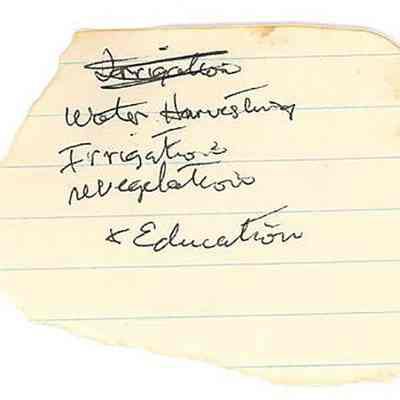 Irrigation
Water Harvesting
Irrigation
revegetation
* Education